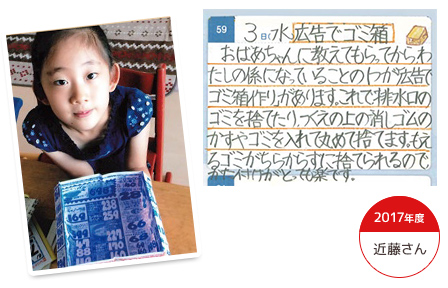 59 3日(水) 広告でゴミ箱
おばあちゃんに教えてもらってから、わ
たしの係になっていることの1つが広告で
ゴミ箱作りがあります。これで排水口の
ゴミを捨てたり、つくえの上の消しゴムの
かすやゴミを入れて丸めて捨てます。もえ
るゴミがちらからずに捨てられるので
かた付けがとっても楽です。
2017年度
近藤さん
169
238
259